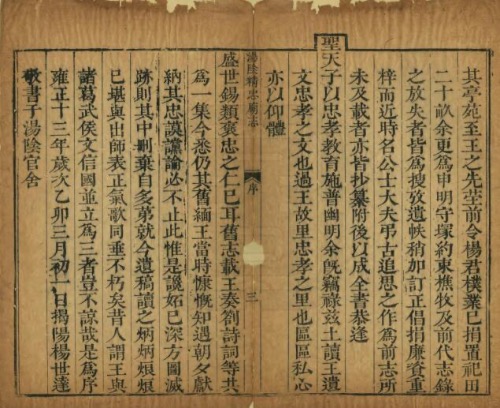 其亭苑至王之先塋前令楊君樸業已捐置祀田
二十畝余更爲申明守塚約束樵牧及前代志錄
之放失者皆爲搜攷遺軼稍加訂正倡捐廉資重
梓而近時名公士大夫弔古追思之作爲前志所
未及載者亦皆抄纂附後以成全書恭逢
聖天子以忠孝教育施普幽明余旣竊祿兹土讀王遺
文忠孝之文也過王故里忠孝之里也區區私心
亦以仰體
湯陰精忠廟志
序
三
盛世錫類褒忠之仁已耳舊志載王奏劄詩詞等共
爲一集今悉仍其舊緬王當時慷慨知遇朝夕獻
納其忠謨讜論必不止此惟是讒妬已深方圖滅
跡則其中刪棄自多第就今遺稿讀之炳炳烺烺
已堪與出師表正氣歌同垂不朽矣昔人謂王與
諸葛武侯文信國並立爲三者豈不諒哉是爲序
雍正十三年歲次乙卯三月初一日揭陽楊世達
敬書于湯陰官舍